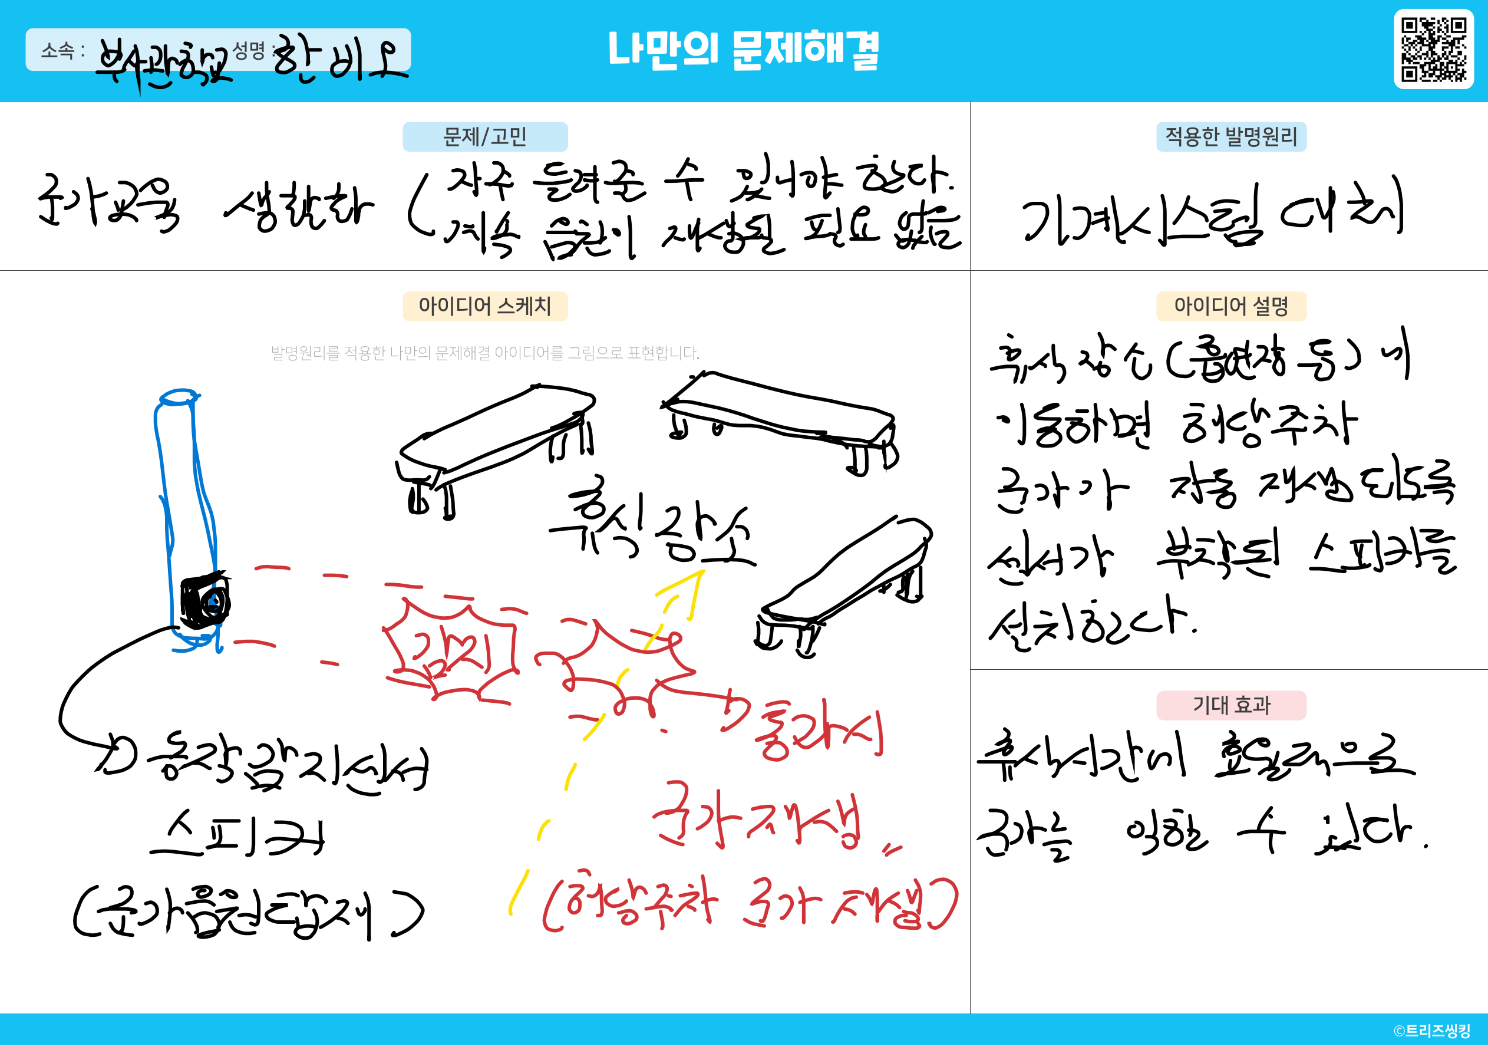 소속 : 부사관학교 성명 : 한비오
나만의 문제해결
문제/고민
군가교육 생활화 ( 자주 들려준 수 있어야 한다.
계속 음원이 재생될 필요 없음
적용한 발명원리
기계시스템 대체
아이디어 스케치
발명원리를 적용한 나만의 문제해결 아이디어를 그림으로 표현합니다.
휴식 장소
감지
통과시
군가 재생
(해당주차 군가 재생)
동작감지센서
스피커
(군가음원탑재)
아이디어 설명
휴식 장소(흡연장 등)에
이동하면 해당주차
군가가 자동 재생되도록
센서가 부착된 스피커를
설치한다.
기대 효과
휴식시간에 효율적으로
군가를 익힐 수 있다.
©트리즈씽킹